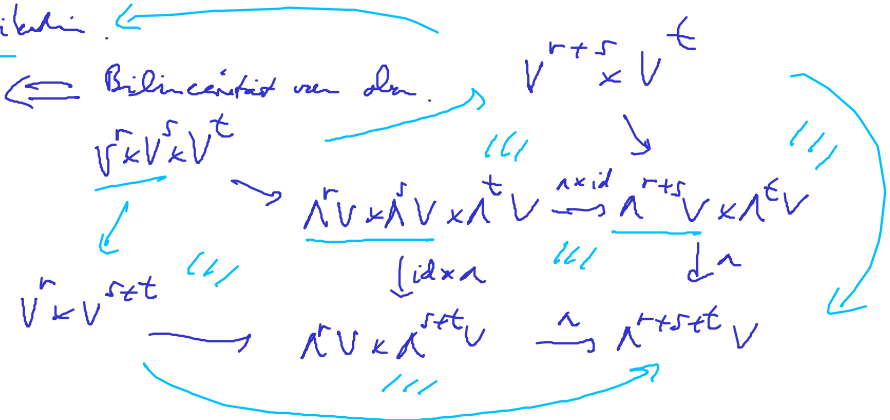 ⇐ Bilinearität von oben.
V^{r+s} × V^t
V^r × V^s × V^t
Λ^r V × Λ^s V × Λ^t V →^{∧ × id} Λ^{r+s} V × Λ^t V
↓ id × ∧ ↓ ∧
V^r × V^{s+t}
Λ^r V × Λ^{s+t} V →^{∧} Λ^{r+s+t} V